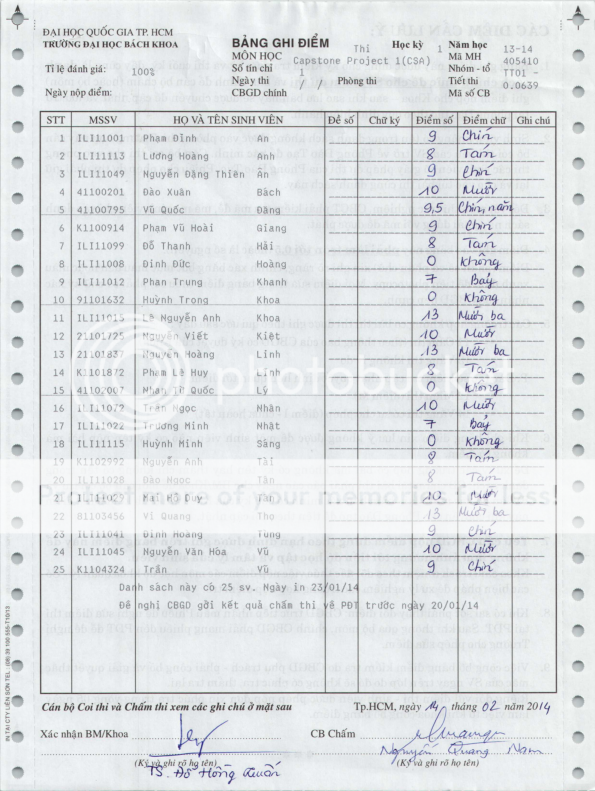 ĐẠI HỌC QUỐC GIA TP. HCM
TRƯỜNG ĐẠI HỌC BÁCH KHOA
Tỉ lệ đánh giá: 100%
Ngày nộp điểm:
BẢNG GHI ĐIỂM Thi Học kỳ 1 Năm học 13-14
MÔN HỌC Capstone Project 1(CSA) Mã MH 405410
Số tín chỉ 1 Nhóm - tổ TT01 -
Ngày thi / / Phòng thi Tiết thi
CBGD chính Mã số CB 0.0639
STT MSSV HỌ VÀ TÊN SINH VIÊN Đề số Chữ ký Điểm số Điểm chữ Ghi chú
1 ILI11001 Phạm Đĩnh An 9 Chín
2 ILI11113 Lương Hoàng Anh 8 Tám
3 ILI11049 Nguyễn Đặng Thiên Ân 9 Chín
4 41100201 Đào Xuân Bách 10 Mười
5 41100795 Vũ Quốc Đăng 9,5 Chín, năm
6 K1100914 Phạm Vũ Hoài Giang 9 Chín
7 ILI11099 Đỗ Thanh Hải 8 Tám
8 ILI11008 Đinh Đức Hoàng 0 Không
9 ILI11012 Phan Trung Khanh 7 Bảy
10 91101632 Huỳnh Trọng Khoa 0 Không
11 ILI11015 Lê Nguyễn Anh Khoa 13 Mười ba
12 21101725 Nguyễn Viết Kiệt 10 Mười
13 21101837 Nguyễn Hoàng Linh 13 Mười ba
14 K1101872 Phạm Lê Huy Lĩnh 8 Tám
15 41102007 Nhan Tử Quốc Lý 0 Không
16 ILI11072 Trần Ngọc Nhân 10 Mười
17 ILI11022 Trương Minh Nhật 7 Bảy
18 ILI11115 Huỳnh Minh Sáng 0 Không
19 K1102992 Nguyễn Anh Tài 8 Tám
20 ILI11028 Đào Ngọc Tân 8 Tám
21 ILI11029 Mai Hồ Duy Tân 10 Mười
22 81103456 Vi Quang Thọ 13 Mười ba
23 ILI11041 Đinh Hoàng Tùng 9 Chín
24 ILI11045 Nguyễn Văn Hòa Vũ 10 Mười
25 K1104324 Trần Vũ 9 Chín
Danh sách này có 25 sv. Ngày in 23/01/14
Đề nghị CBGD gởi kết quả chấm thi về PĐT trước ngày 20/01/14
photobucket
of your memories for less!
IN TẠI CTY LIÊN SƠN
Cán bộ Coi thi và Chấm thi xem các ghi chú ở mặt sau
Tp.HCM, ngày 14 tháng 02 năm 2014
Xác nhận BM/Khoa
CB Chấm
Nguyễn Quang Nam
(Ký và ghi rõ họ tên)
(Ký và ghi rõ họ tên)
TS. Đỗ Hồng Tuấn